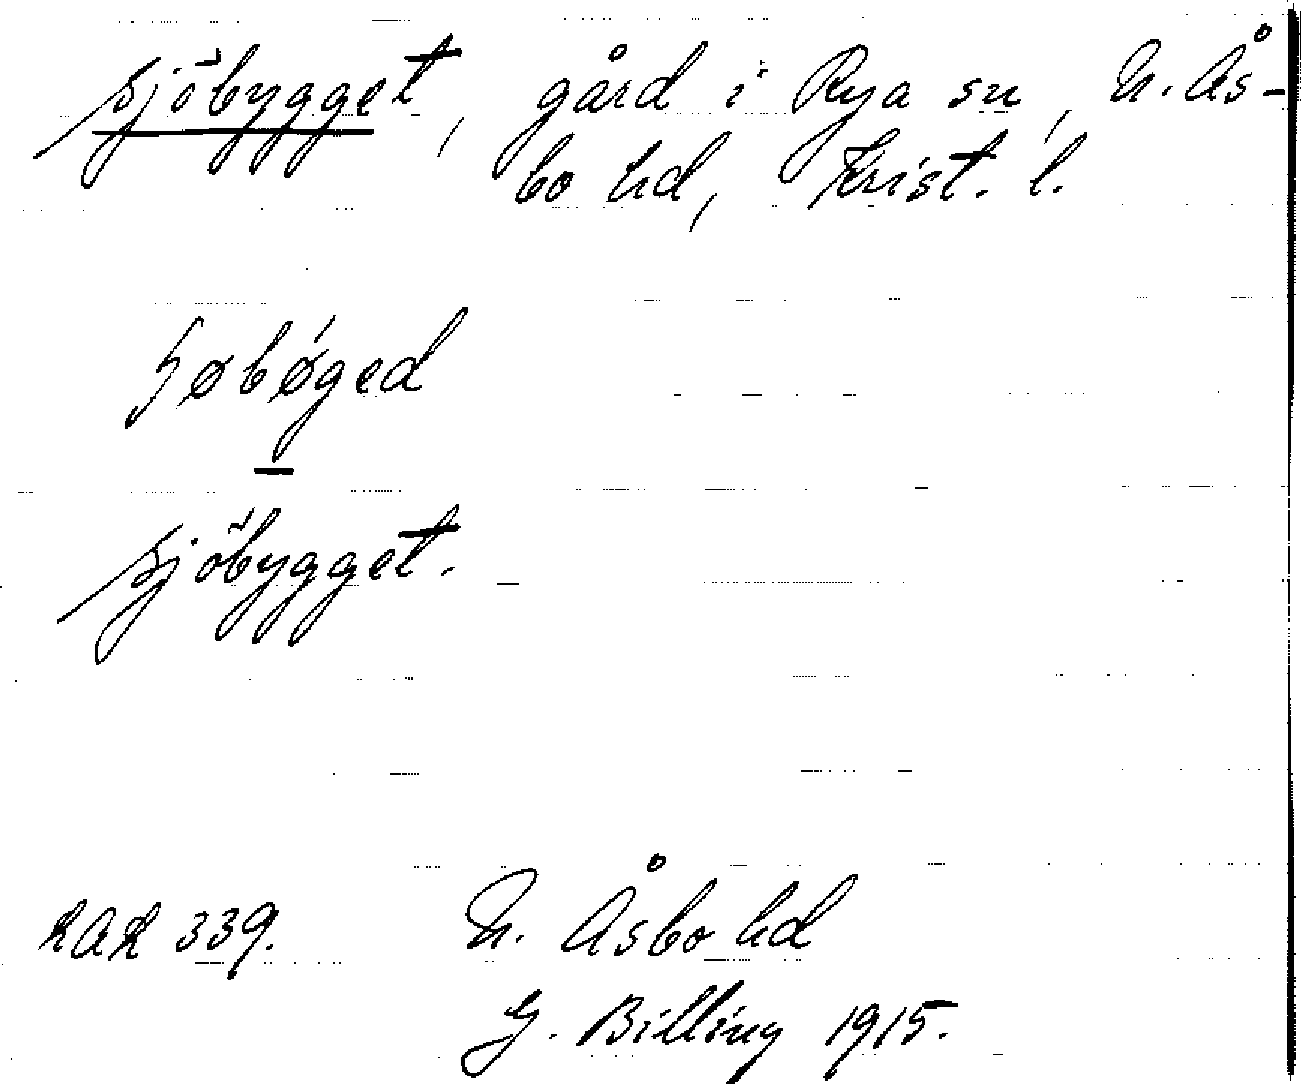 Sjöbygget, gård i Rya sn, N. Ås-
bo hd, Krist. l.
ɧøbǿged
Sjöbygget.
RAÄ 339. N. Åsbo hd
G. Billing 1915.